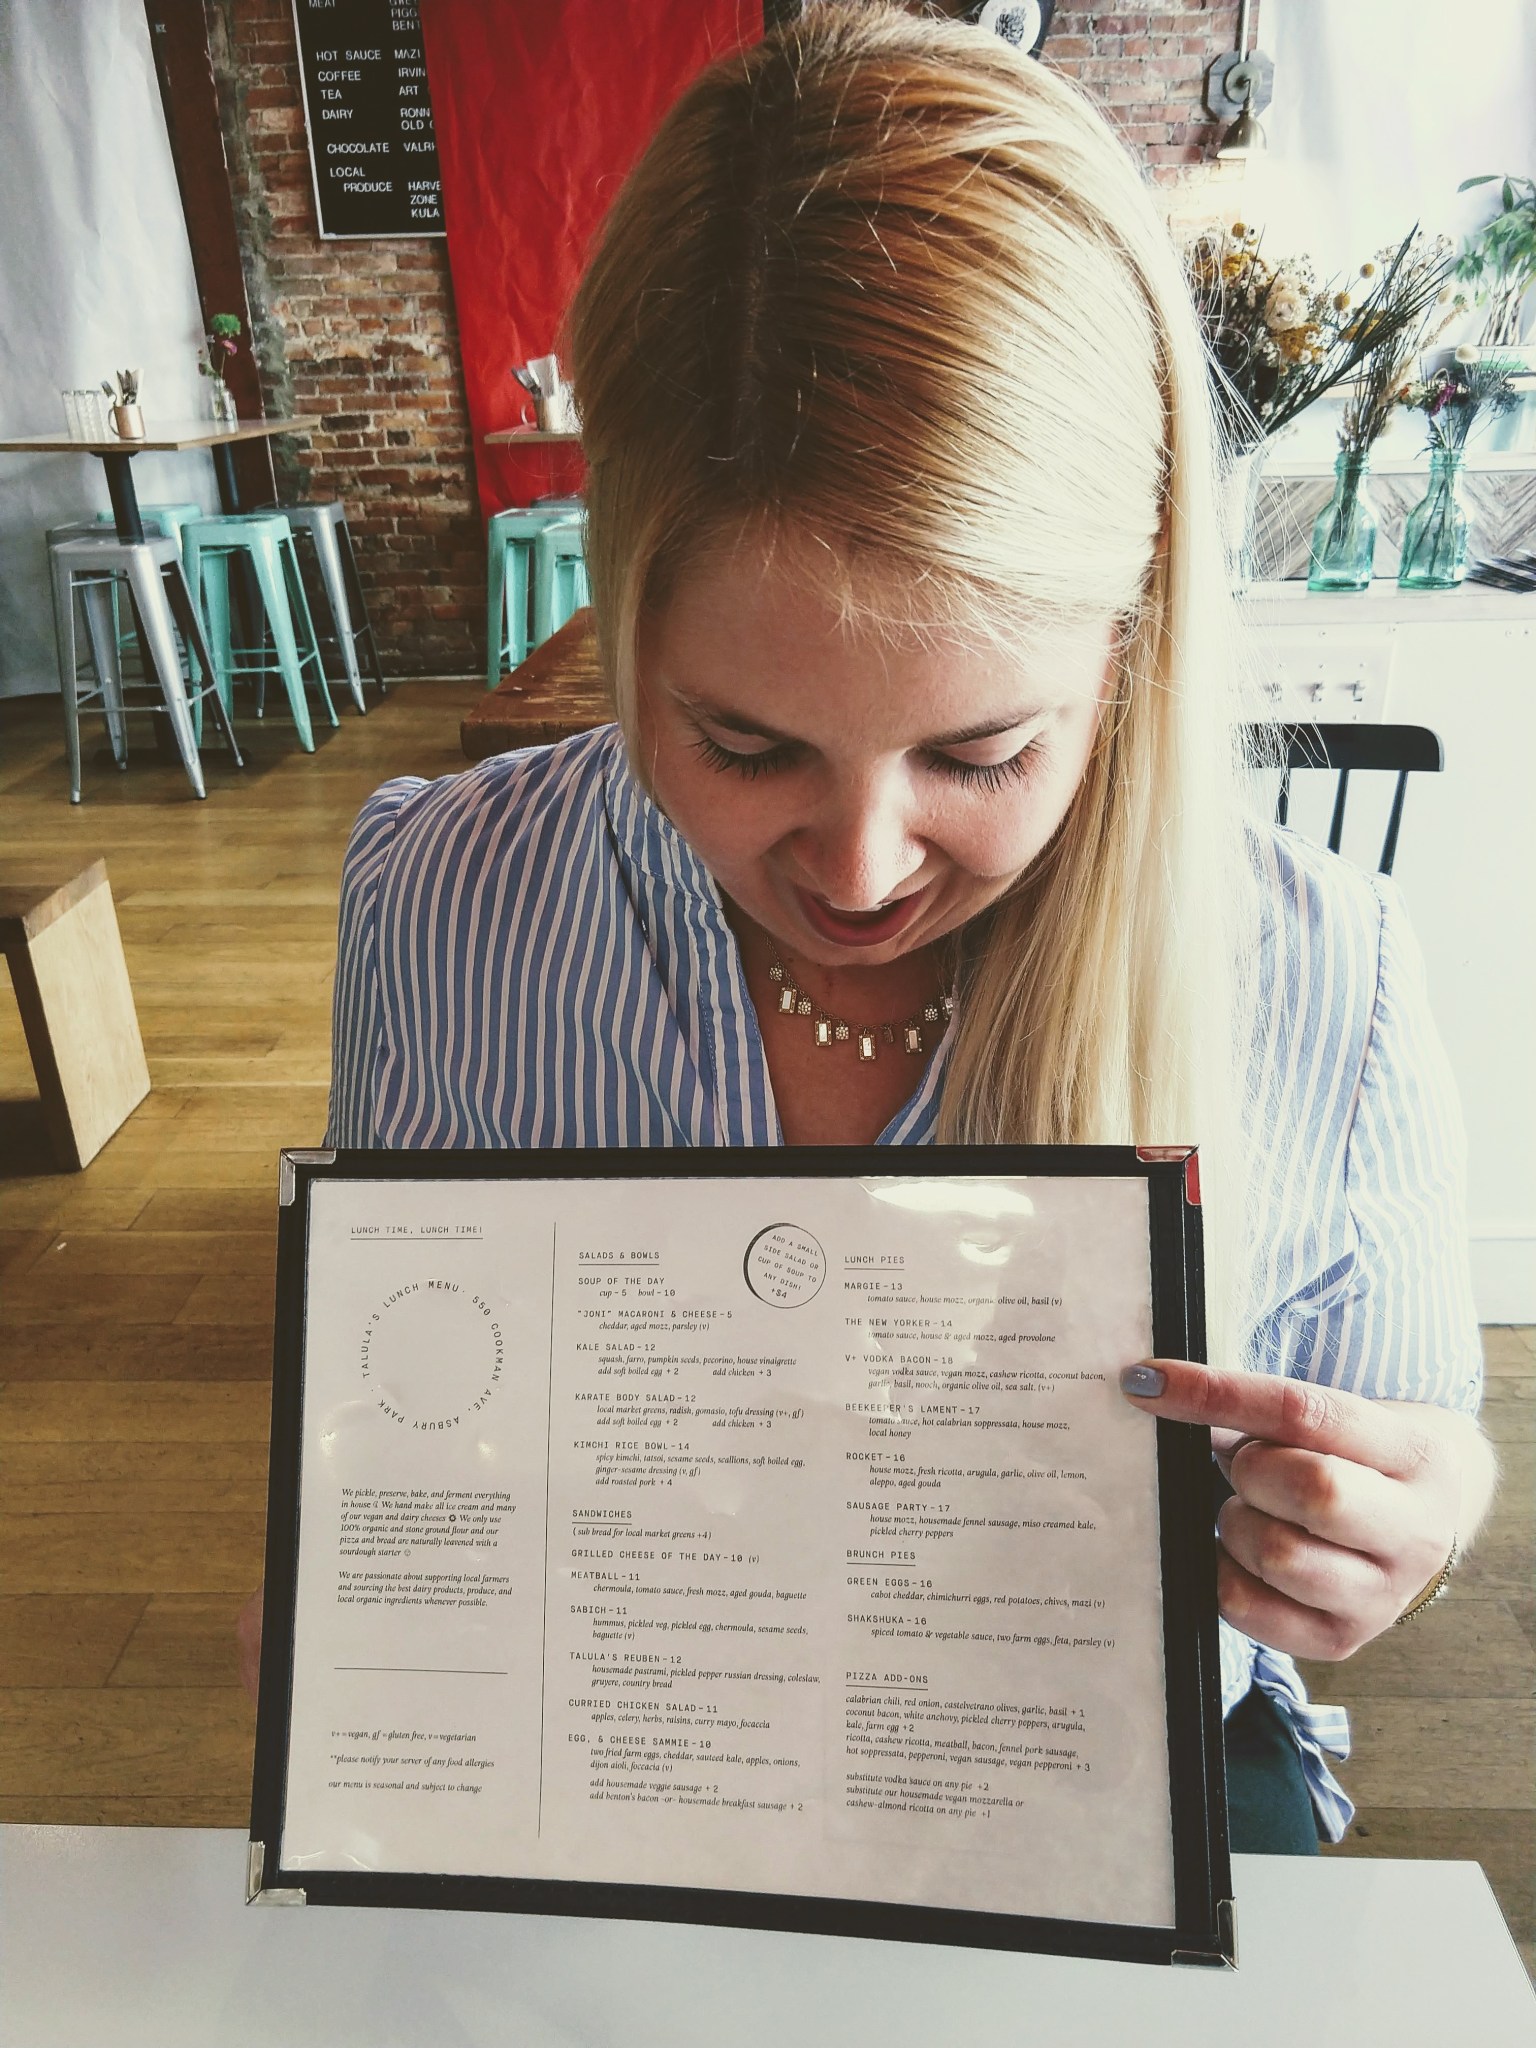 MEAT
PIGG
BENT
HOT SAUCE MAZI
COFFEE IRVIN
TEA ART
DAIRY RONN
OLD
CHOCOLATE VALRH
LOCAL
PRODUCE HARVE
ZONE
KULA
LUNCH TIME, LUNCH TIME!
TALULA'S LUNCH MENU · 550 COOKMAN AVE, ASBURY PARK ·
We pickle, preserve, bake, and ferment everything
in house We hand make all ice cream and many
of our vegan and dairy cheeses We only use
100% organic and stone ground flour and our
pizza and bread are naturally leavened with a
sourdough starter
We are passionate about supporting local farmers
and sourcing the best dairy products, produce, and
local organic ingredients whenever possible.
v+ = vegan, gf = gluten free, v = vegetarian
**please notify your server of any food allergies
our menu is seasonal and subject to change
SALADS & BOWLS
ADD A SMALL
SIDE SALAD OR
CUP OF SOUP TO
ANY DISH!
+$4
SOUP OF THE DAY
cup - 5 bowl - 10
"JONI" MACARONI & CHEESE - 5
cheddar, aged mozz, parsley (v)
KALE SALAD - 12
squash, farro, pumpkin seeds, pecorino, house vinaigrette
add soft boiled egg + 2 add chicken + 3
KARATE BODY SALAD - 12
local market greens, radish, gomasio, tofu dressing (v+, gf)
add soft boiled egg + 2 add chicken + 3
KIMCHI RICE BOWL - 14
spicy kimchi, tatsoi, sesame seeds, scallions, soft boiled egg,
ginger-sesame dressing (v, gf)
add roasted pork + 4
SANDWICHES
( sub bread for local market greens +4 )
GRILLED CHEESE OF THE DAY - 10 (v)
MEATBALL - 11
chermoula, tomato sauce, fresh mozz, aged gouda, baguette
SABICH - 11
hummus, pickled veg, pickled egg, chermoula, sesame seeds,
baguette (v)
TALULA'S REUBEN - 12
housemade pastrami, pickled pepper russian dressing, coleslaw,
gruyere, country bread
CURRIED CHICKEN SALAD - 11
apples, celery, herbs, raisins, curry mayo, focaccia
EGG, & CHEESE SAMMIE - 10
two fried farm eggs, cheddar, sauteed kale, apples, onions,
dijon aioli, foccacia (v)
add housemade veggie sausage + 2
add benton's bacon -or- housemade breakfast sausage + 2
LUNCH PIES
MARGIE - 13
tomato sauce, house mozz, organic olive oil, basil (v)
THE NEW YORKER - 14
tomato sauce, house & aged mozz, aged provolone
V+ VODKA BACON - 18
vegan vodka sauce, vegan mozz, cashew ricotta, coconut bacon,
garlic, basil, nooch, organic olive oil, sea salt. (v+)
BEEKEEPER'S LAMENT - 17
tomato sauce, hot calabrian soppressata, house mozz,
local honey
ROCKET - 16
house mozz, fresh ricotta, arugula, garlic, olive oil, lemon,
aleppo, aged gouda
SAUSAGE PARTY - 17
house mozz, housemade fennel sausage, miso creamed kale,
pickled cherry peppers
BRUNCH PIES
GREEN EGGS - 16
cabot cheddar, chimichurri eggs, red potatoes, chives, mazi (v)
SHAKSHUKA - 16
spiced tomato & vegetable sauce, two farm eggs, feta, parsley (v)
PIZZA ADD-ONS
calabrian chili, red onion, castelvetrano olives, garlic, basil + 1
coconut bacon, white anchovy, pickled cherry peppers, arugula,
kale, farm egg +2
ricotta, cashew ricotta, meatball, bacon, fennel pork sausage,
hot soppressata, pepperoni, vegan sausage, vegan pepperoni + 3
substitute vodka sauce on any pie +2
substitute our housemade vegan mozzarella or
cashew-almond ricotta on any pie +1